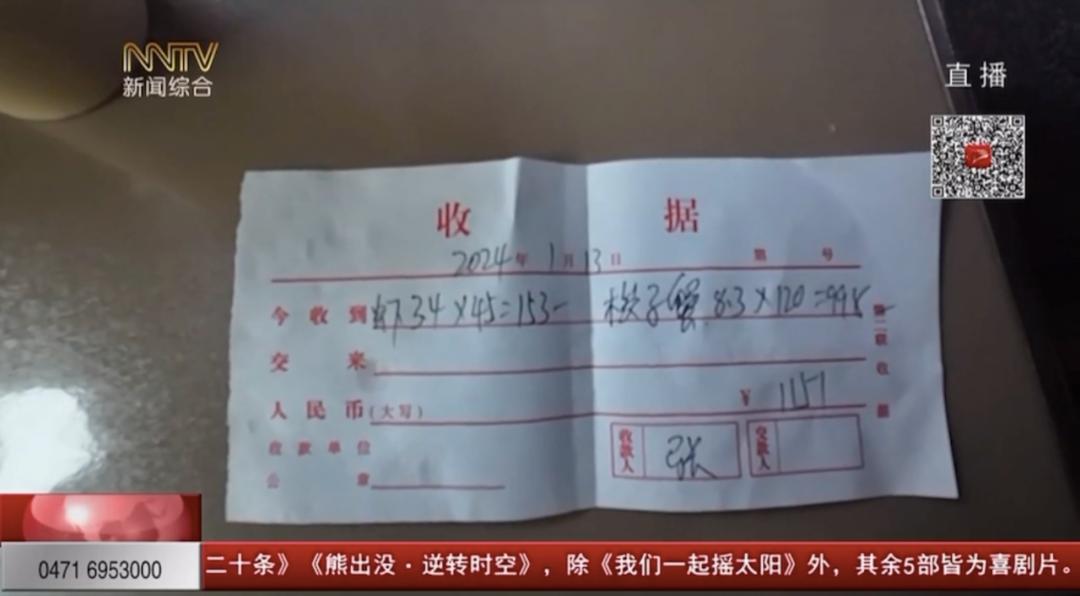 NNTV
新闻综合
直播
收 据
2024年1月13日 第 号
今收到 虾 34×45=153- 梭子蟹 8.3×120=998-
交来
人民币(大写) ¥ 1151
收款单位
公章
收款人 张 交款人
第二联 收据
0471 6953000
二十条》《熊出没·逆转时空》,除《我们一起摇太阳》外,其余5部皆为喜剧片。